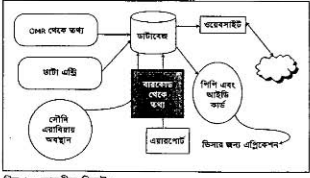 OMR থেকে তথ্য
ডাটাবেজ
ওয়েবসাইট
ডাটা এন্ট্রি
বারকোড
থেকে
তথ্য
পিপি এবং
আইডি
কার্ড
সৌদি
এরাবিয়ায়
অবস্থান
এয়ারপোর্ট
ভিসার জন্য এপ্লিকেশন